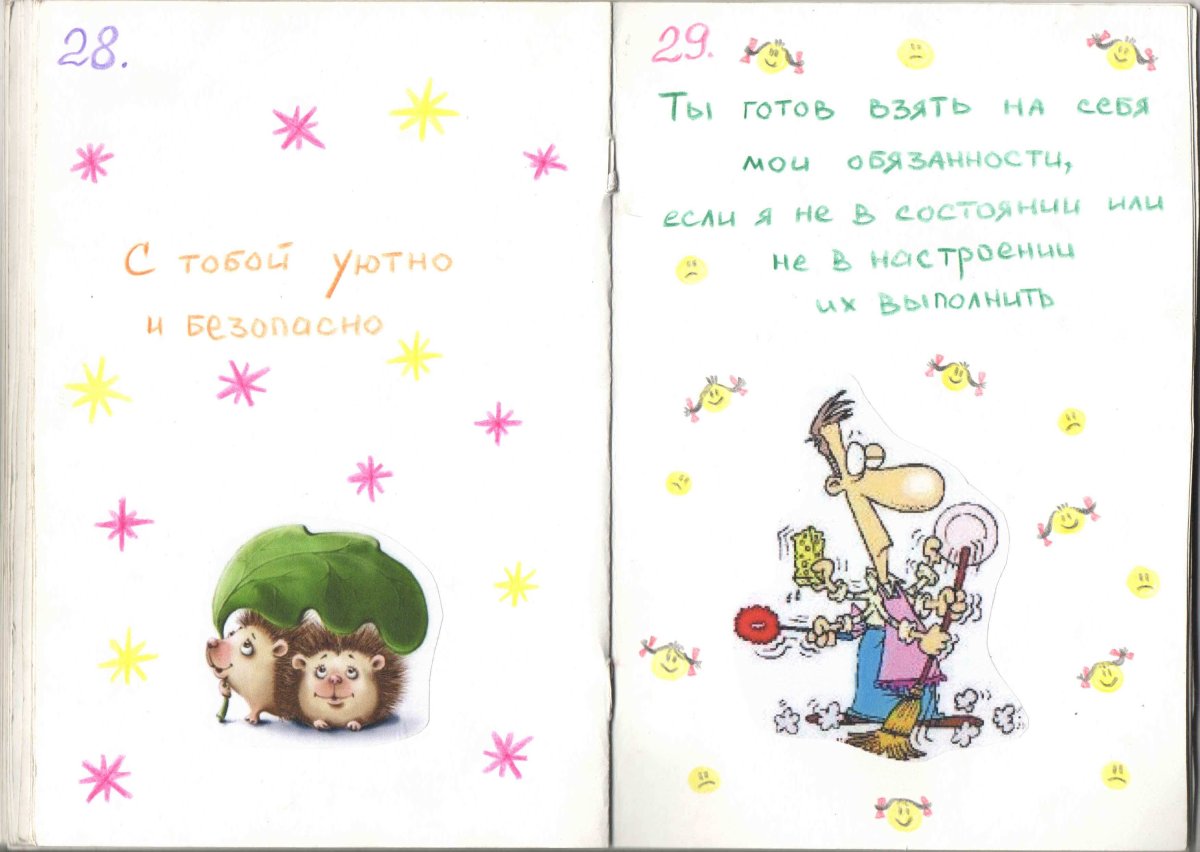 28.
С тобой уютно
и безопасно
29.
Ты готов взять на себя
мои обязанности,
если я не в состоянии или
не в настроении
их выполнить